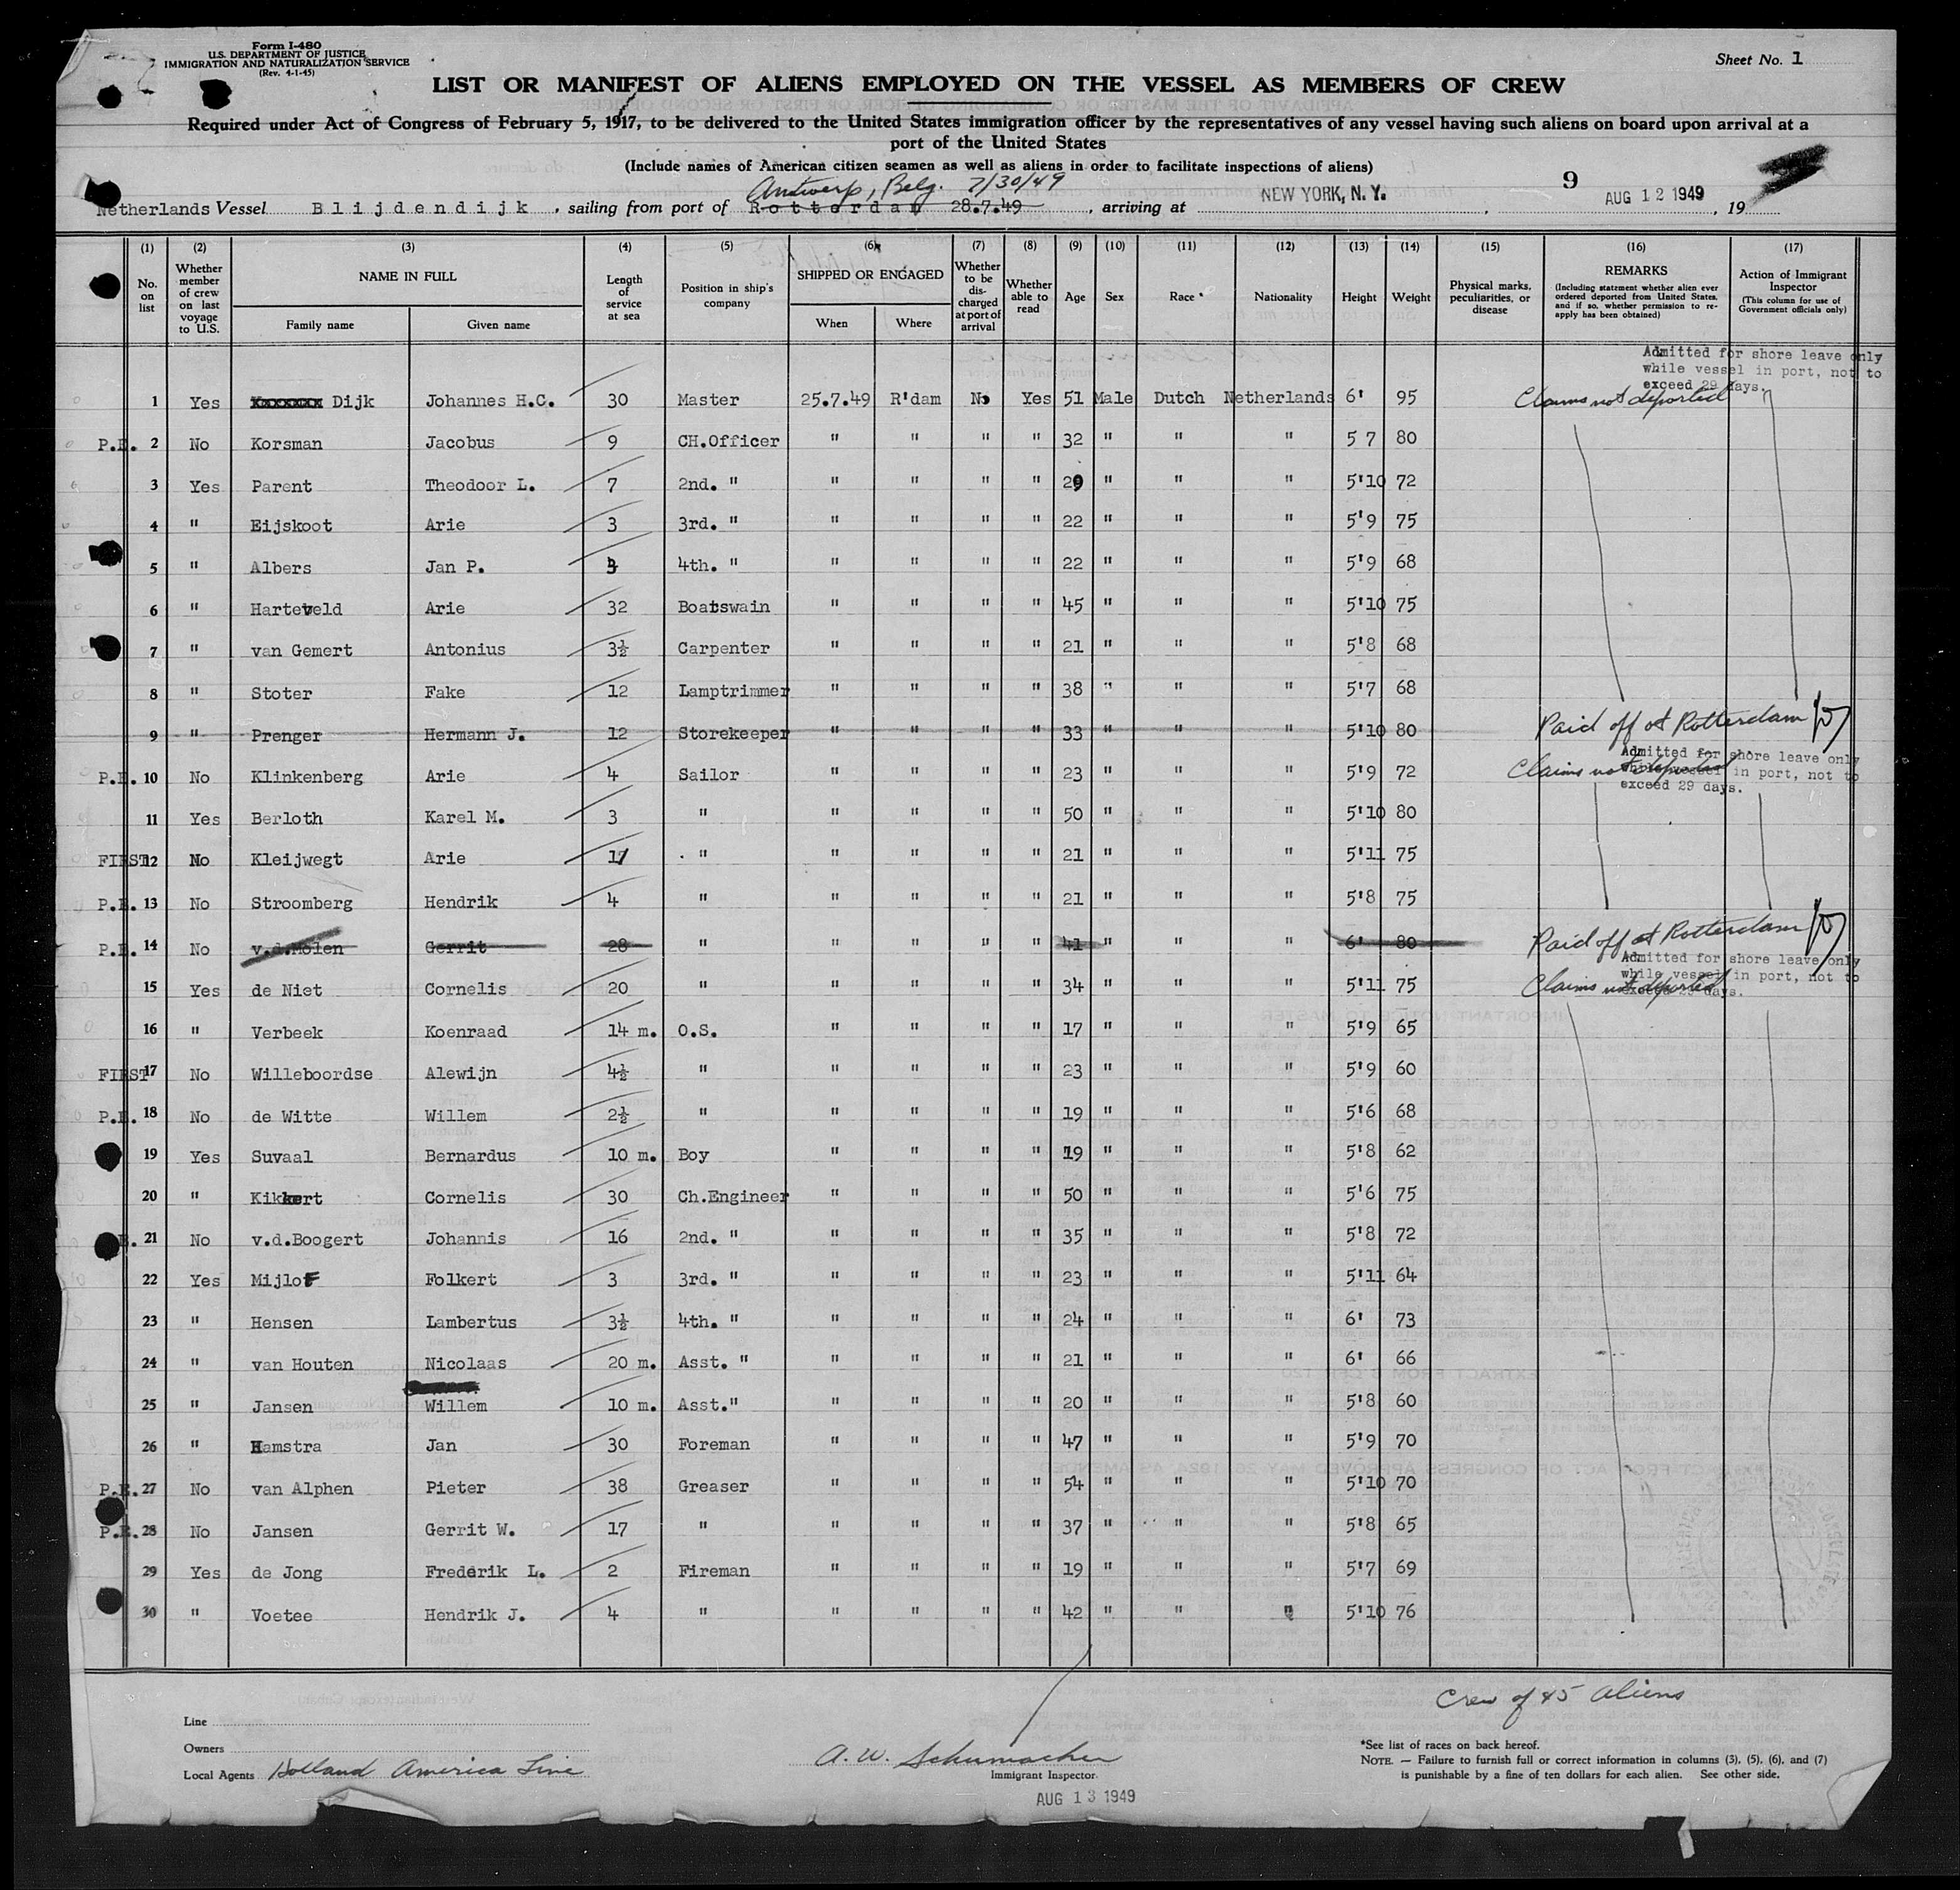 Form I-480
U.S. DEPARTMENT OF JUSTICE
IMMIGRATION AND NATURALIZATION SERVICE
(Rev. 4-1-45)
Sheet No. 1
LIST OR MANIFEST OF ALIENS EMPLOYED ON THE VESSEL AS MEMBERS OF CREW
Required under Act of Congress of February 5, 1917, to be delivered to the United States immigration officer by the representatives of any vessel having such aliens on board upon arrival at a
port of the United States
(Include names of American citizen seamen as well as aliens in order to facilitate inspections of aliens)
Antwerp, Belg. 7/30/49
Netherlands Vessel Blijdendijk, sailing from port of Rotterdam 28.7.49, arriving at NEW YORK, N.Y., 9 AUG 12 1949, 19
(1) (2) (3) (4) (5) (6) (7) (8) (9) (10) (11) (12) (13) (14) (15) (16) (17)
No. on list | Whether member of crew on last voyage to U.S. | NAME IN FULL | Family name | Given name | Length of service at sea | Position in ship's company | SHIPPED OR ENGAGED | When | Where | Whether to be discharged at port of arrival | Whether able to read | Age | Sex | Race* | Nationality | Height | Weight | Physical marks, peculiarities, or disease | REMARKS (Including statement whether alien ever ordered deported from United States, and if so, whether permission to reapply has been obtained) | Action of Immigrant Inspector (This column for use of Government officials only)
Admitted for shore leave only
while vessel in port, not to
exceed 29 days.
1 Yes xxxxxxx Dijk Johannes H.C. 30 Master 25.7.49 R'dam No Yes 51 Male Dutch Netherlands 6' 95 Claims not deported
P.E. 2 No Korsman Jacobus 9 CH.Officer " " " " 32 " " " 5 7 80
3 Yes Parent Theodoor L. 7 2nd. " " " " " 29 " " " 5'10 72
4 " Eijskoot Arie 3 3rd. " " " " " 22 " " " 5'9 75
5 " Albers Jan P. 3 4th. " " " " " 22 " " " 5'9 68
6 " Harteveld Arie 32 Boatswain " " " " 45 " " " 5'10 75
7 " van Gemert Antonius 3½ Carpenter " " " " 21 " " " 5'8 68
8 " Stoter Fake 12 Lamptrimmer " " " " 38 " " " 5'7 68
9 " Prenger Hermann J. 12 Storekeeper " " " " 33 " " " 5'10 80 Paid off at Rotterdam
Admitted for shore leave only
while vessel in port, not to
exceed 29 days.
P.E. 10 No Klinkenberg Arie 4 Sailor " " " " 23 " " " 5'9 72 Claims not deported
11 Yes Berloth Karel M. 3 " " " " " 50 " " " 5'10 80
FIRST 12 No Kleijwegt Arie 17 " " " " " 21 " " " 5'11 75
P.E. 13 No Stroomberg Hendrik 4 " " " " " 21 " " " 5'8 75
P.E. 14 No v.d.Molen Gerrit 28 " " " " " 41 " " " 6' 80 Paid off at Rotterdam
Admitted for shore leave only
while vessel in port, not to
exceed 29 days.
15 Yes de Niet Cornelis 20 " " " " " 34 " " " 5'11 75 Claims not deported
16 " Verbeek Koenraad 14 m. O.S. " " " " 17 " " " 5'9 65
FIRST 17 No Willeboordse Alewijn 4½ " " " " " 23 " " " 5'9 60
P.E. 18 No de Witte Willem 2½ " " " " " 19 " " " 5'6 68
19 Yes Suvaal Bernardus 10 m. Boy " " " " 19 " " " 5'8 62
20 " Kikkert Cornelis 30 Ch.Engineer " " " " 50 " " " 5'6 75
E. 21 No v.d.Boogert Johannis 16 2nd. " " " " " 35 " " " 5'8 72
22 Yes Mijlof Folkert 3 3rd. " " " " " 23 " " " 5'11 64
23 " Hensen Lambertus 3½ 4th. " " " " " 24 " " " 6' 73
24 " van Houten Nicolaas 20 m. Asst. " " " " " 21 " " " 6' 66
25 " Jansen Willem 10 m. Asst." " " " " 20 " " " 5'8 60
26 " Hamstra Jan 30 Foreman " " " " 47 " " " 5'9 70
P.E. 27 No van Alphen Pieter 38 Greaser " " " " 54 " " " 5'10 70
P.E. 28 No Jansen Gerrit W. 17 " " " " " 37 " " " 5'8 65
29 Yes de Jong Frederik L. 2 Fireman " " " " 19 " " " 5'7 69
30 " Voetee Hendrik J. 4 " " " " " 42 " " " 5'10 76
Crew of 45 Aliens
Line
Owners
Local Agents Holland America Line
A. W. Schumacher
Immigrant Inspector.
AUG 13 1949
*See list of races on back hereof.
NOTE. — Failure to furnish full or correct information in columns (3), (5), (6), and (7)
is punishable by a fine of ten dollars for each alien. See other side.